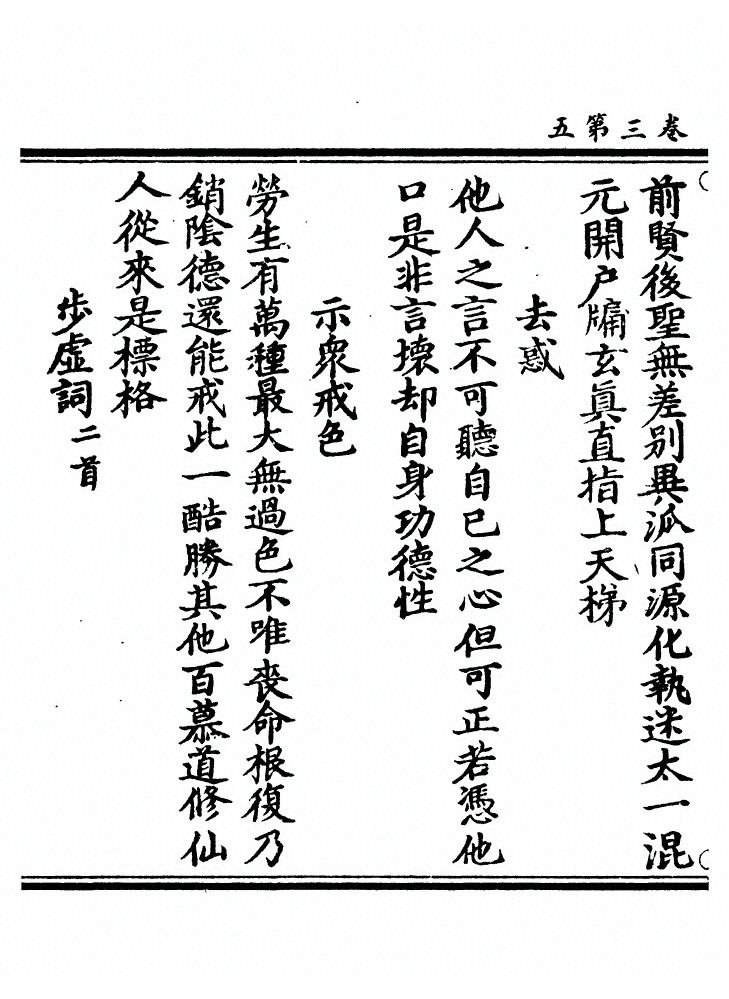 卷三第五
前賢後聖無差別異派同源化執迷太一混
元開户牖玄真直指上天梯
去惑
他人之言不可聽自已之心但可正若憑他
口是非言壞却自身功德性
示衆戒色
勞生有萬種最大無過色不唯喪命根復乃
銷陰德還能戒此一酷勝其他百慕道修仙
人從來是標格
步虛詞二首